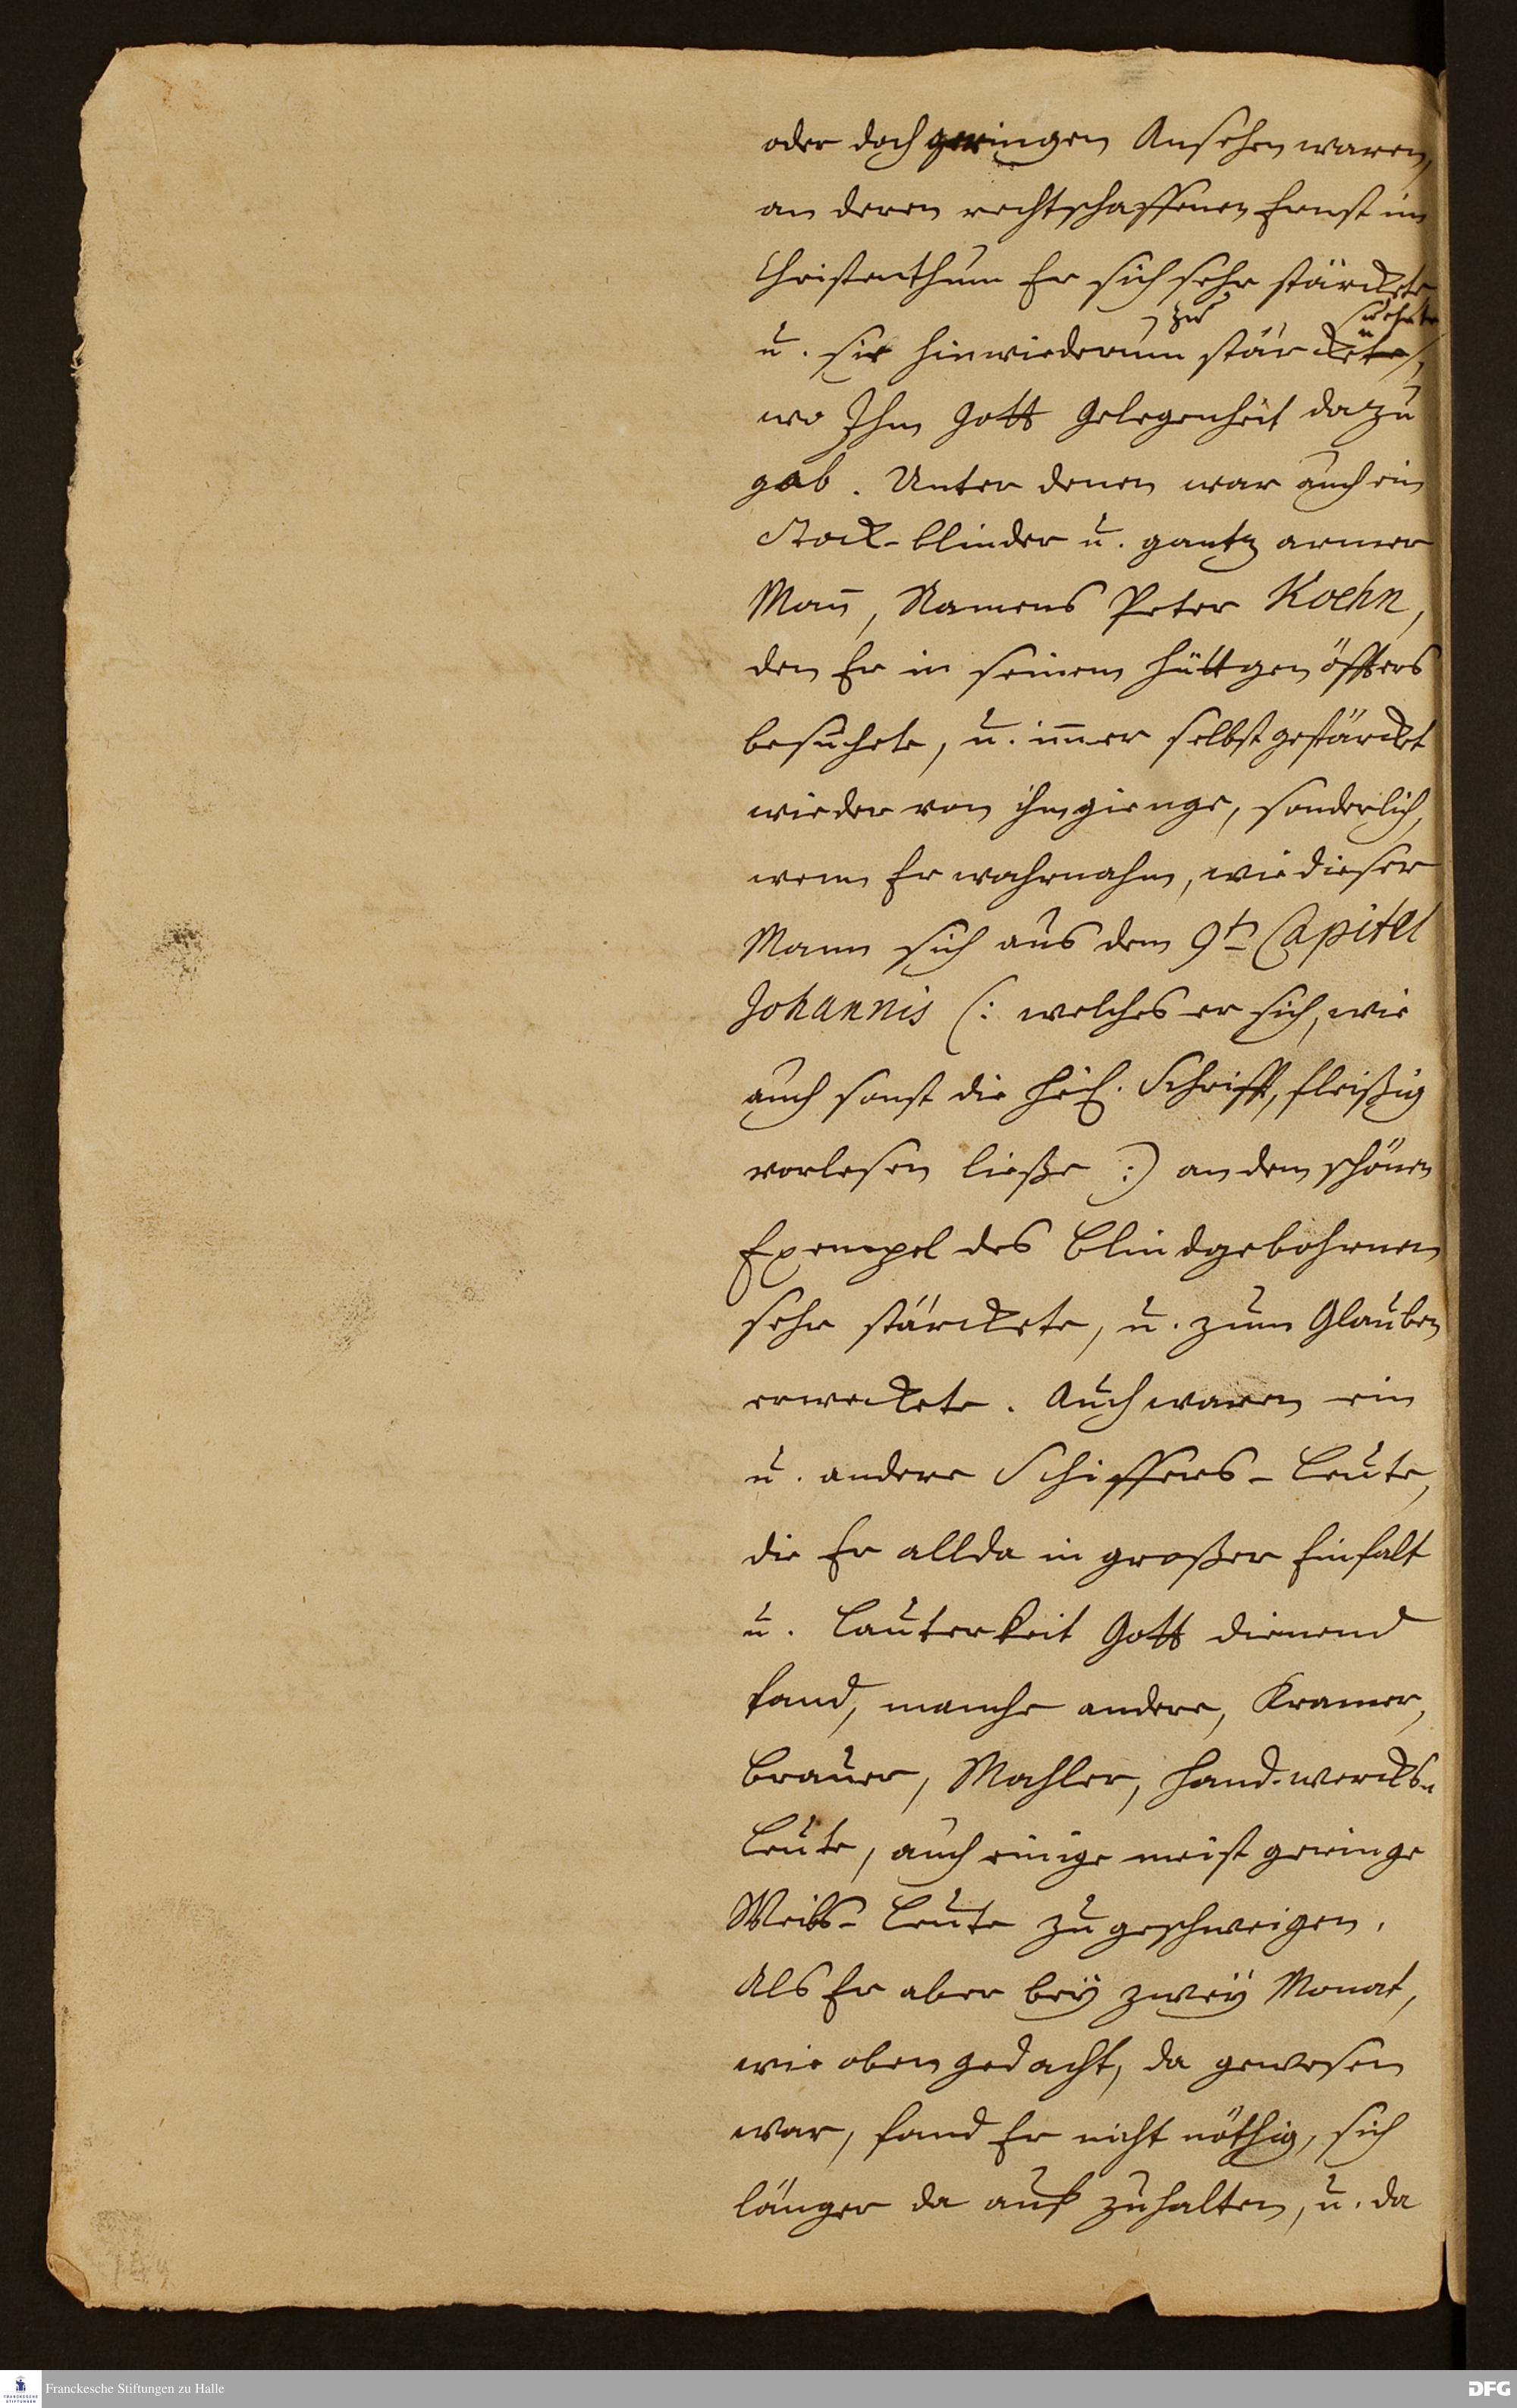 oder doch geringen Ansehen waren,
an deren rechtschaffenen Ernst im
Christenthum Er sich sehr stärckete
u. sie hinwiederum zu stärcken suchte,
wo Ihm Gott Gelegenheit dazu
gab. Unter denen war auch ein
Stock-blinder u. gantz armer
Man̄, Namens Peter Koehn,
den Er in seinem Hüttgen öffters
besuchete, u. im̄er selbst gestärcket
wieder von ihm gienge, sonderlich,
wenn Er wahrnahm, wie dieser
Mann sich aus dem 9t Capitel
Johannis (: welches er sich, wie
auch sonst die Heil. Schrifft, fleißig
vorlesen ließe :) an dem schönen
Exempel des Blindgebohrnen
sehr stärckete, u. zum Glauben
erweckete. Auch waren ein
u. andere Schiffers-Leute,
die Er allda in großer Einfalt
u. Lauterkeit Gott dienend
fand, manche andere, Kramer,
Brauer, Mahler, Hand-wercks-
Leute, auch einige meist geringe
Weibs-Leute zu geschweigen.
Als Er aber bey zwey Monat,
wie oben gedacht, da gewesen
war, fand Er nicht nöthig, sich
länger da auf zuhalten, u. da
Franckesche Stiftungen zu Halle
DFG